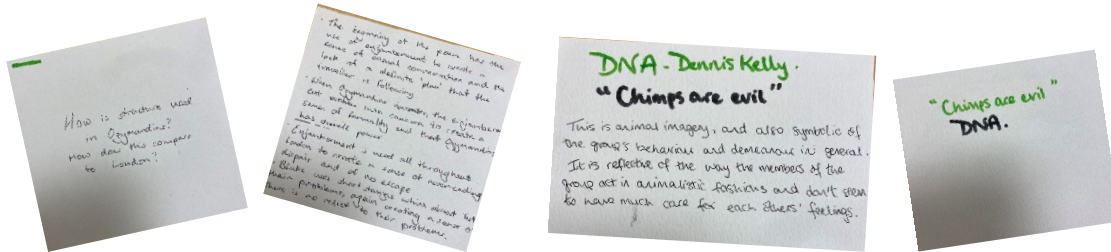 How is structure used
in Ozymandias?
How does this compare
to London?
. The beginning of the poem has the
use of enjambement to create a
sense of casual conversation and the
lack of a definite 'plan' that the
traveller is following
. When Ozymandias narrates, the enjambement
and
sense of humanity and that Ozymandias
has overall power.
. Enjambement is used all throughout
London to create a sense of neverending
despair and of no escape
. Blake uses short
their problems, again creating a sense of
there is no relief to their problems.
DNA - Dennis Kelly.
"Chimps are evil"
This is animal imagery, and also symbolic of
the group's behaviour and demeanour in general.
It is reflective of the way the members of the
group act in animalistic fashions and don't seem
to have much care for each others' feelings.
"Chimps are evil"
DNA.